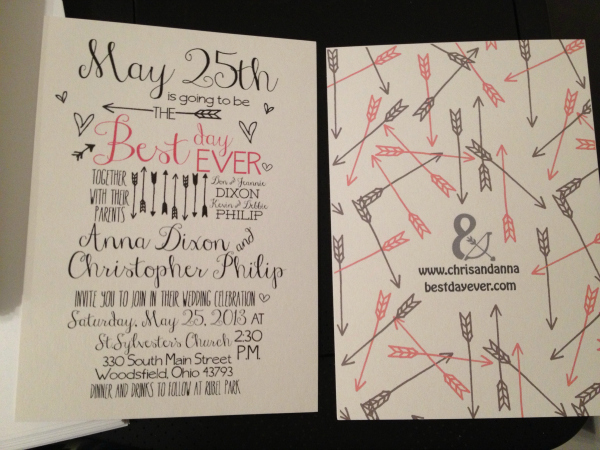 May 25th
is going to be
THE
Best day
EVER
TOGETHER
WITH THEIR
PARENTS
Don & Jeannie
DIXON
Kevin & Debbie
PHILIP
Anna Dixon and
Christopher Philip
INVITE YOU TO JOIN IN THEIR WEDDING CELEBRATION
Saturday, May 25, 2013 AT
St. Sylvester's Church 2:30 P.M.
330 South Main Street
Woodsfield, Ohio 43793
DINNER AND DRINKS TO FOLLOW AT RUBEL PARK
&
www.chrisandanna
bestdayever.com